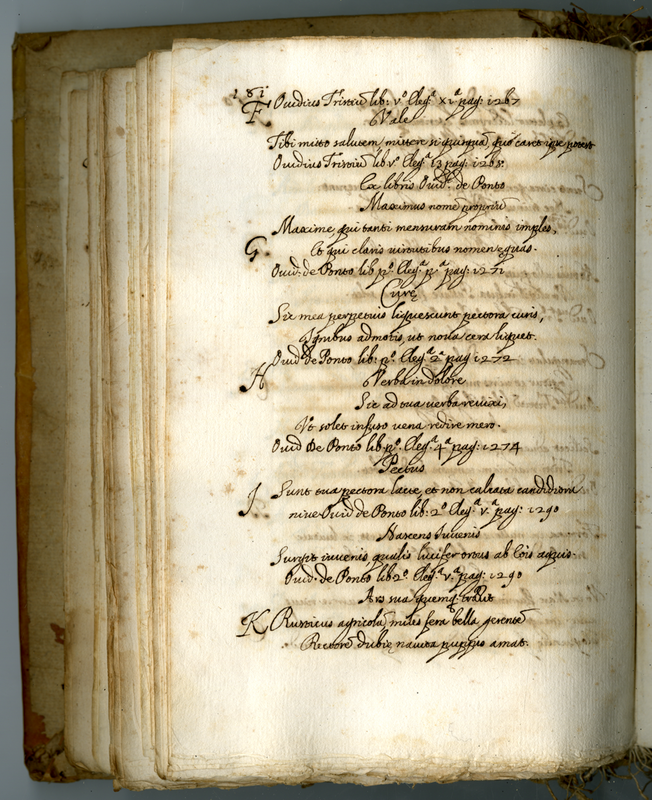 181
F Ouidius Tristiū lib: vº Eleg.ª xiª pag: 1267
Vale
Tibi mitto salutem, mittere si quisquā, quo caret ipse potest
Ouidius Tristiū lib vº Eleg.ª 13 pag: 1268.
Ex libris Ouid. de Ponto
Maximus nomē propriū
Maxime, qui tanti mensuram nominis imples,
G. Et qui claris uirtutibus nomen equas.
Ouid. de Ponto lib pº Eleg.ª pª pag: 1271
Curę
Sic mea perpetuis liquescunt pectora curis,
Ignibus admotis, ut noua cera liquet.
Ouid. de Ponto lib: pº Eleg.ª 2ª pag 1272
H Verba in dolore
Sic ad tua uerba reuixi,
Vt solet infuso uena redire mero.
Ouid De Ponto lib pº. Eleg.ª 4ª pag: 1274
Pectus
I Sunt tua pectora lacte, et non calcata candidiora
niue Ouid de Ponto lib: 2º Eleg.ª vª pag: 1290
Nascens Iuuenis
Surgit iuuenis qualis lucifer ortus ab Eois aquis.
Ouid. de Ponto lib 2º Eleg.ª vª pag: 1290
Ars sua quemq: trahit
K Rusticus agricolā, miles fera bella gerentē
Rectorē dubię nauita puppis amat.